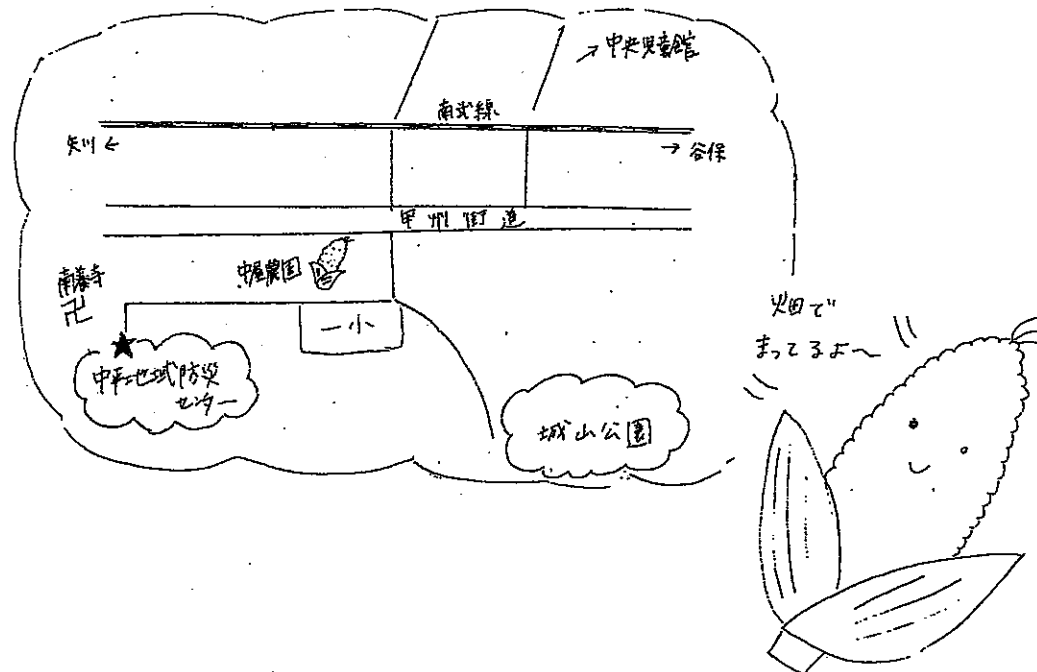 →中央児童館
南武線
矢川←
→谷保
甲州街道
中屋農園
南養寺
卍
一小
★
中平地域防災
センター
城山公園
畑で
まってるよ〜